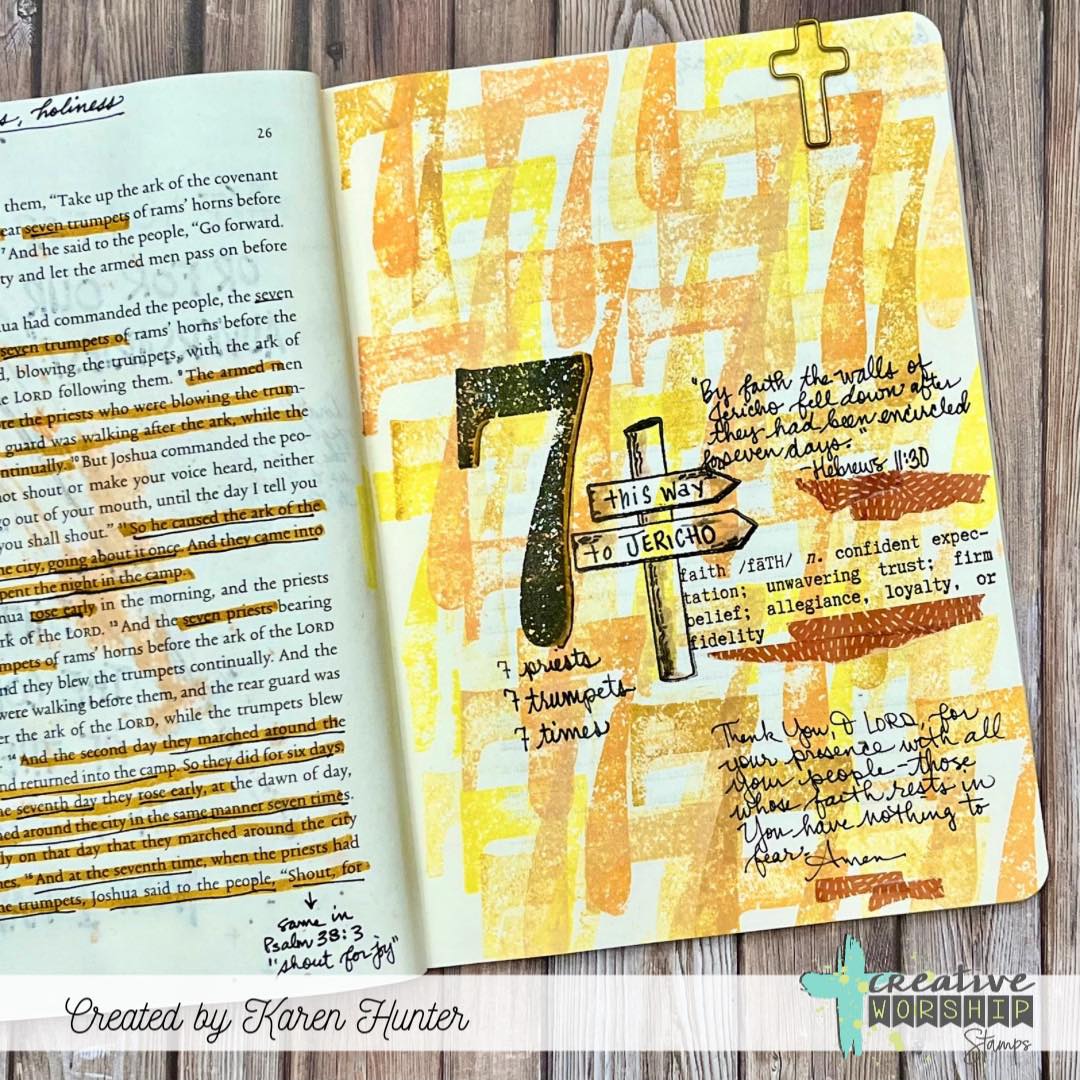 s, holiness
26
them, “Take up the ark of the covenant
ear seven trumpets of rams’ horns before
7 And he said to the people, “Go forward.
ty and let the armed men pass on before
hua had commanded the people, the seven
seven trumpets of rams’ horns before the
d, blowing the trumpets, with the ark of
he LORD following them. 9 The armed men
ore the priests who were blowing the trum-
guard was walking after the ark, while the
ntinually. 10 But Joshua commanded the peo-
not shout or make your voice heard, neither
go out of your mouth, until the day I tell you
you shall shout.” 11 So he caused the ark of the
he city, going about it once. And they came into
spent the night in the camp.
hua rose early in the morning, and the priests
rk of the LORD. 13 And the seven priests bearing
mpets of rams’ horns before the ark of the LORD
nd they blew the trumpets continually. And the
were walking before them, and the rear guard was
er the ark of the LORD, while the trumpets blew
14 And the second day they marched around the
nd returned into the camp. So they did for six days.
he seventh day they rose early, at the dawn of day,
ed around the city in the same manner seven times.
ly on that day that they marched around the city
mes. 16 And at the seventh time, when the priests had
he trumpets, Joshua said to the people, “Shout, for
same in
Psalm 38:3
"shout for joy"
7
this way
to JERICHO
"By faith the walls of
Jericho fell down after
they had been encircled
for seven days."
-Hebrews 11:30
faith /fāTH/ n. confident expec-
tation; unwavering trust; firm
belief; allegiance, loyalty, or
fidelity
7 priests
7 trumpets
7 times
Thank You, O LORD, for
your presence with all
your people - those
whose faith rests in
You have nothing to
fear. Amen
Created by Karen Hunter
creative
WORSHIP
Stamps